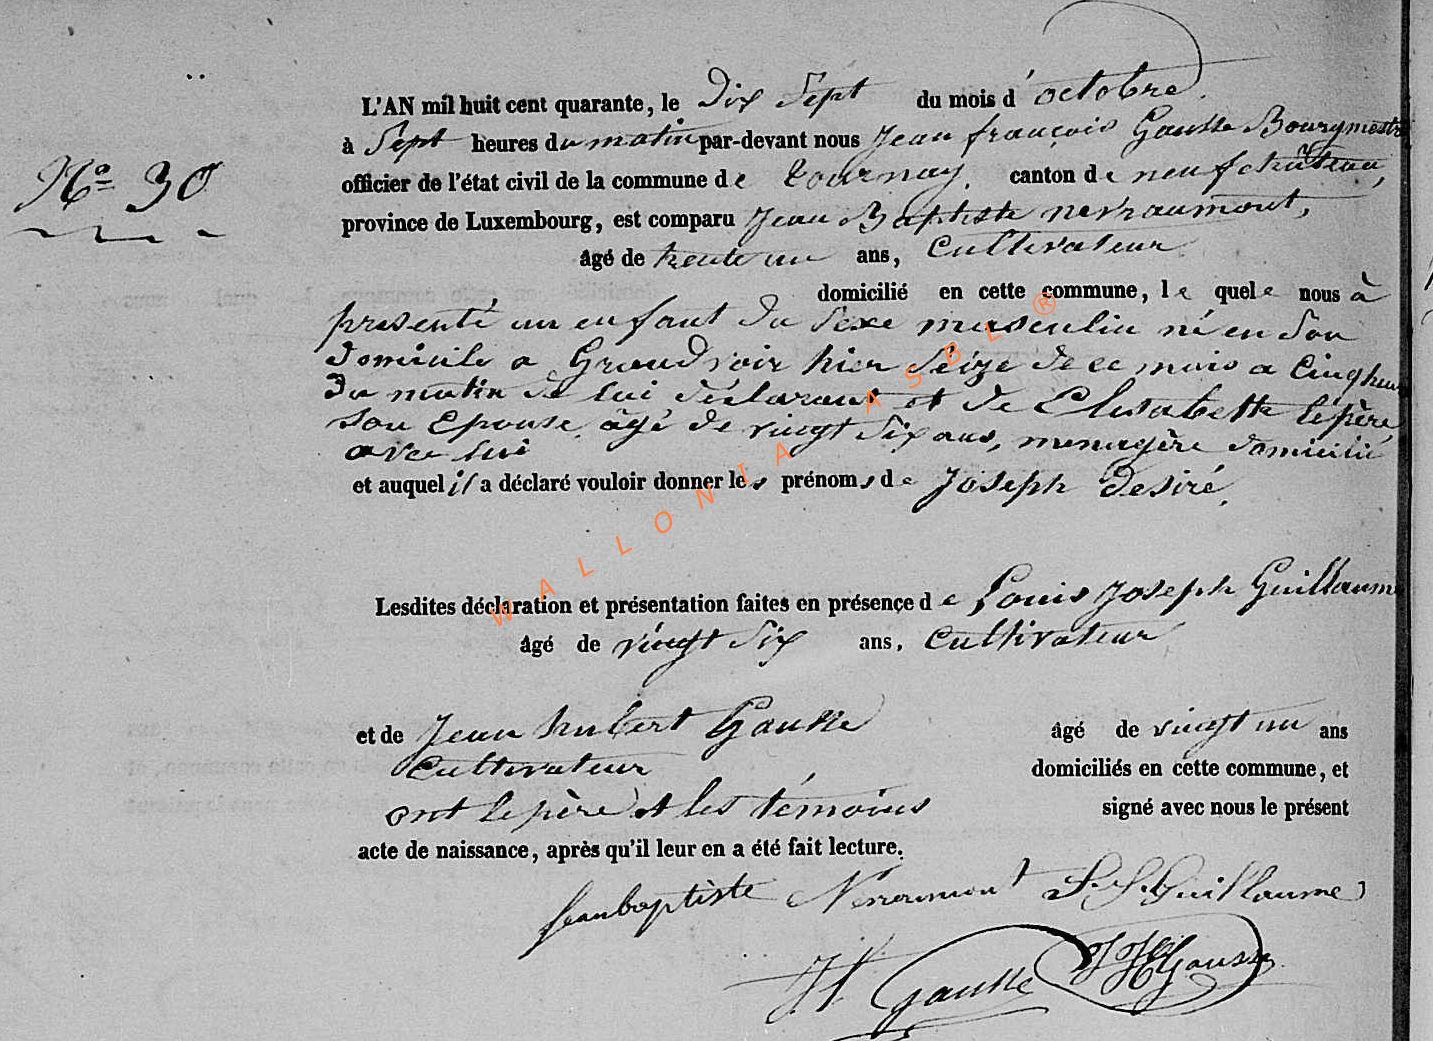 L'AN mil huit cent quarante, le Dix Sept du mois d'octobre.
à Sept heures du matin par-devant nous Jean françois Gausse Bourgmestre
N° 30
officier de l'état civil de la commune de tournay, canton de neufchâteau,
province de Luxembourg, est comparu Jean Baptiste nerraumont,
âgé de trente un ans, Cultivateur
domicilié en cette commune, le quel nous à
présenté un enfant du sexe masculin né en son
domicile a Grandvoir hier seize de ce mois a Cinq heures
du matin de lui déclarant et de Elisabette lepère
son Epouse, âgé de vingt six ans, menagère domicilié
avec lui
et auquel il a déclaré vouloir donner les prénoms de Joseph désiré,
Lesdites déclaration et présentation faites en présence de Louis Joseph Guillaume
âgé de vingt six ans, cultivateur
et de Jean hubert Gausse âgé de vingt un ans
cultivateur domiciliés en cette commune, et
ont le père et les témoins signé avec nous le présent
acte de naissance, après qu'il leur en a été fait lecture.
jeanbaptiste Nerraumont L. J. Guillaume
Gausse JH Gausse
WALLONIA ASBL ®